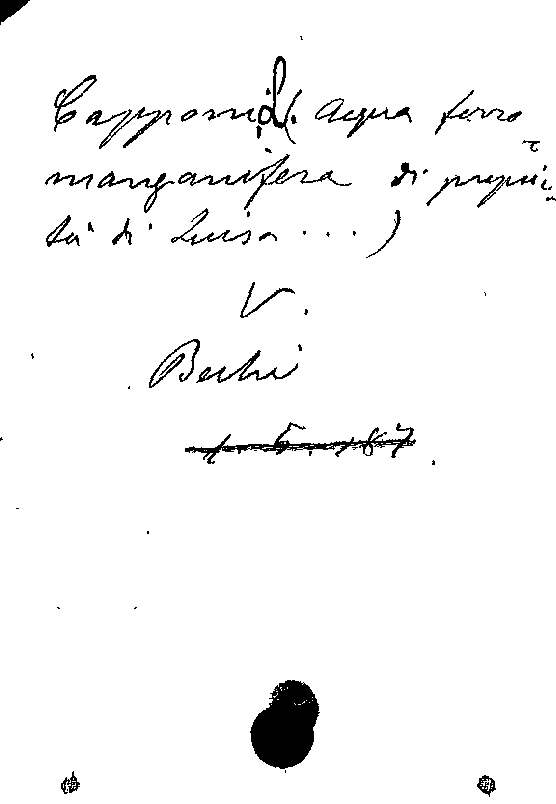 Capponi L. (Acqua ferro=
manganifera di proprie=
tà di Luisa ...)
V.
Bechi